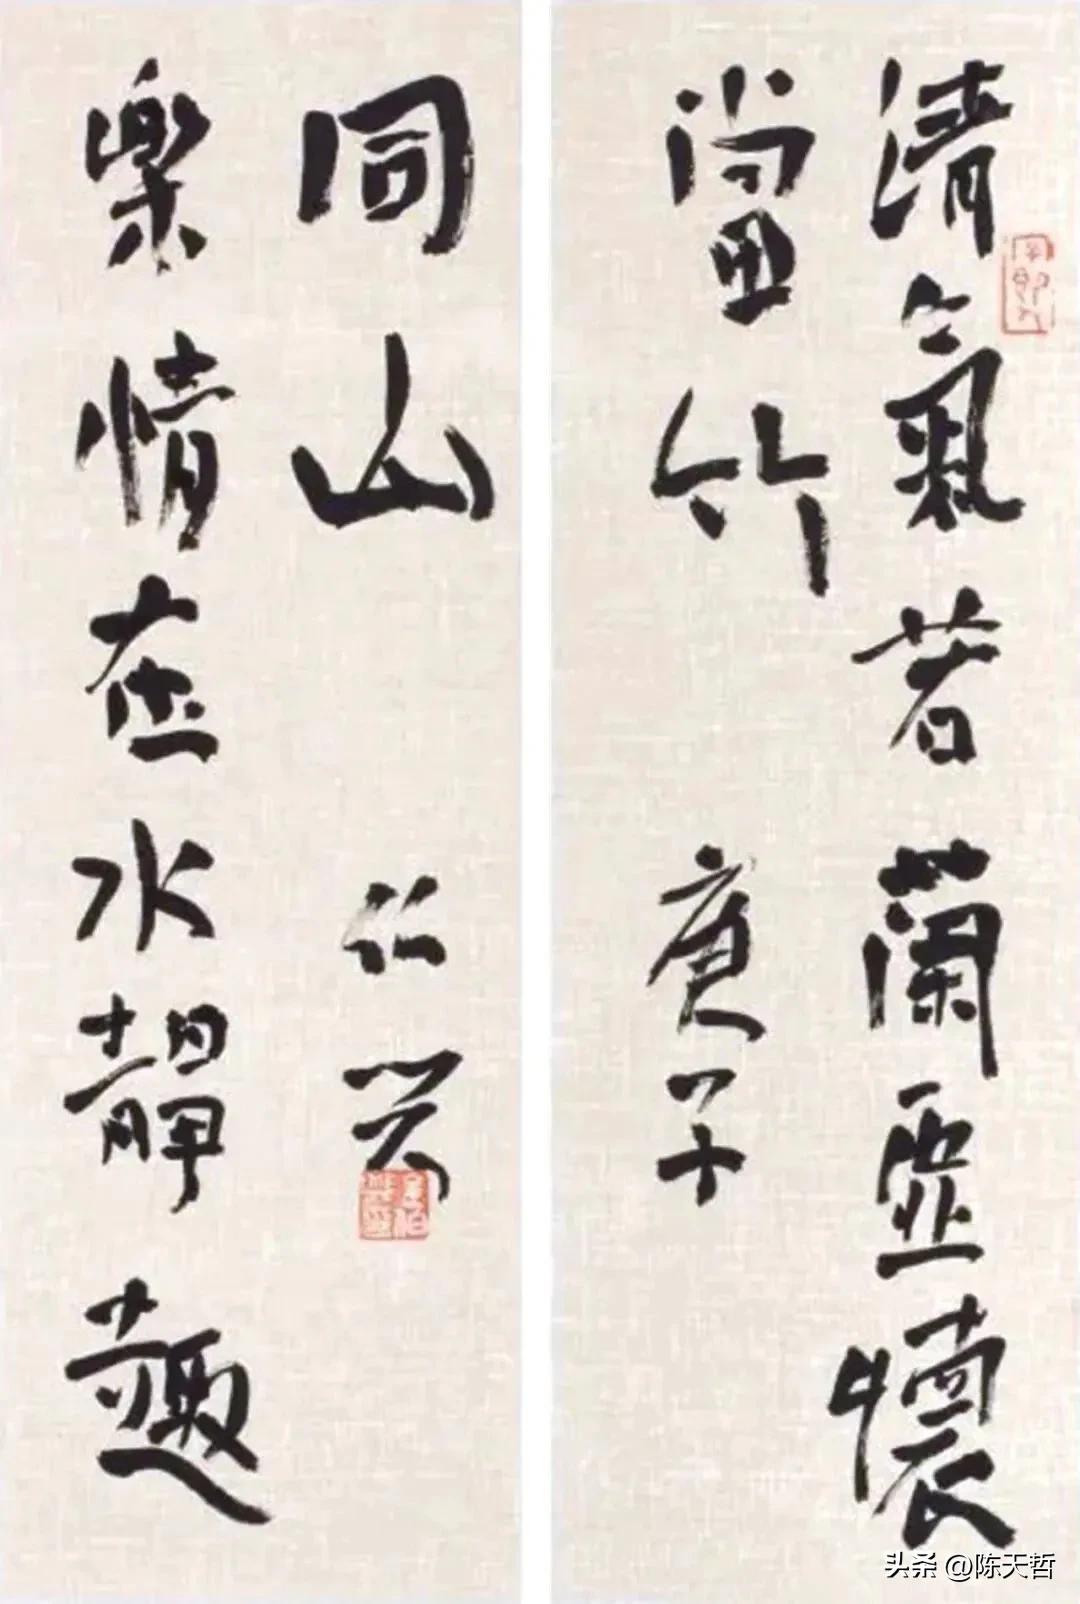 清氣若蘭虛懷
當竹
庚子
樂情在水靜趣
同山
仁芝
头条 @陈天哲